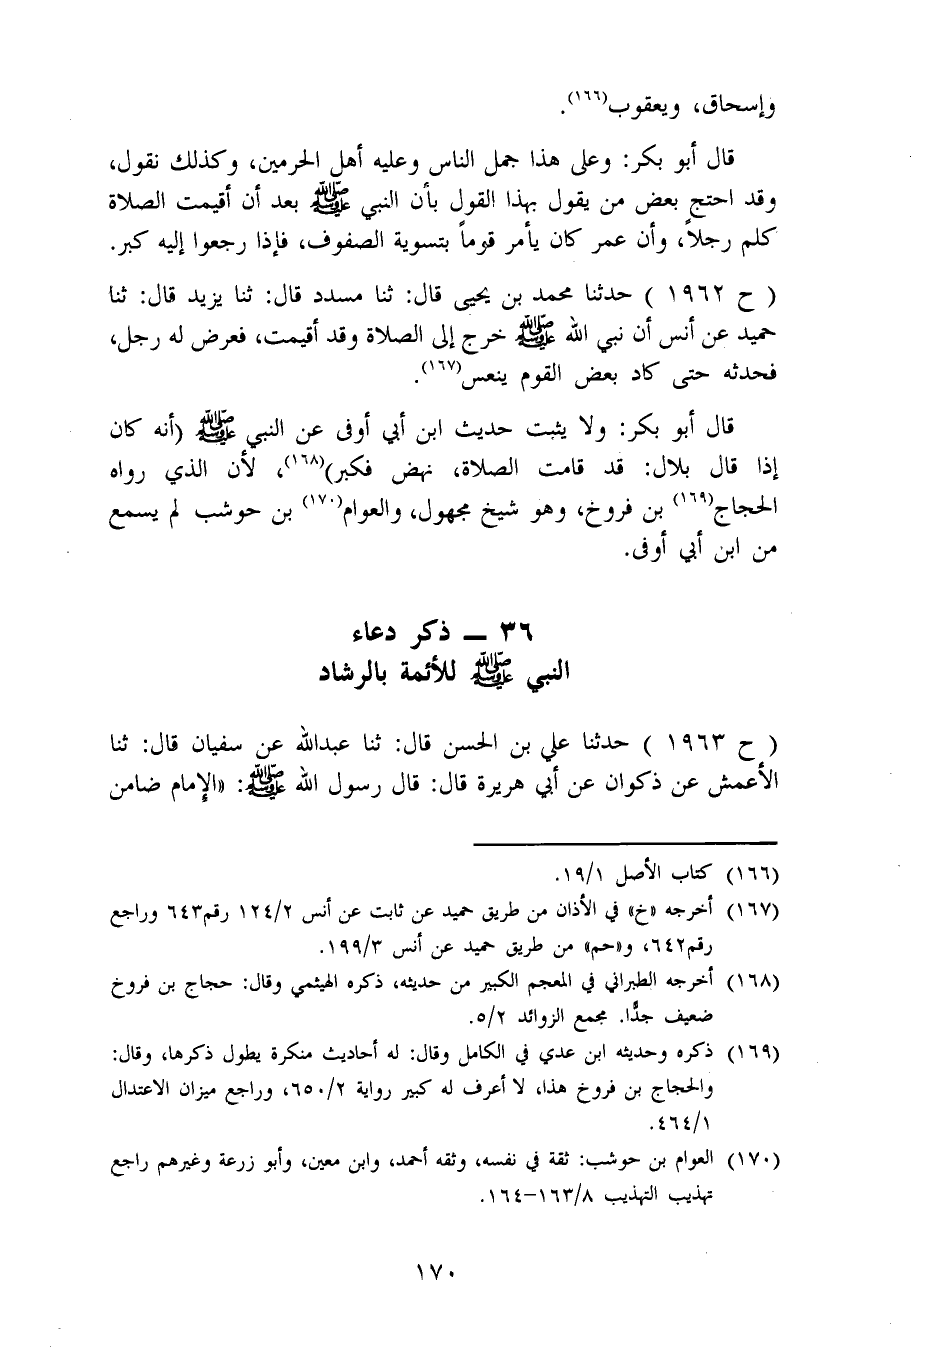 وإسحاق، ويعقوب(١٦٦).
قال أبو بكر: وعلى هذا جمل الناس وعليه أهل الحرمين، وكذلك نقول،
وقد احتج بعض من يقول بهذا القول بأن النبي ﷺ بعد أن أقيمت الصلاة
كلم رجلاً، وأن عمر كان يأمر قوماً بتسوية الصفوف، فإذا رجعوا إليه كبر.
( ح ١٩٦٢ ) حدثنا محمد بن يحيى قال: ثنا مسدد قال: ثنا يزيد قال: ثنا
حميد عن أنس أن نبي الله ﷺ خرج إلى الصلاة وقد أقيمت، فعرض له رجل،
فحدثه حتى كاد بعض القوم ينعس(١٦٧).
قال أبو بكر: ولا يثبت حديث ابن أبي أوفى عن النبي ﷺ (أنه كان
إذا قال بلال: قد قامت الصلاة، نهض فكبر)(١٦٨)، لأن الذي رواه
الحجاج(١٦٩) بن فروخ، وهو شيخ مجهول، والعوام(١٧٠) بن حوشب لم يسمع
من ابن أبي أوفى.
٣٦ ــ ذكر دعاء
النبي ﷺ للأئمة بالرشاد
( ح ١٩٦٣ ) حدثنا علي بن الحسن قال: ثنا عبدالله عن سفيان قال: ثنا
الأعمش عن ذكوان عن أبي هريرة قال: قال رسول الله ﷺ: «الإمام ضامن
(١٦٦) كتاب الأصل ١٩/١.
(١٦٧) أخرجه «خ» في الأذان من طريق حميد عن ثابت عن أنس ١٢٤/٢ رقم٦٤٣ وراجع
رقم٦٤٢، و«حم» من طريق حميد عن أنس ١٩٩/٣.
(١٦٨) أخرجه الطبراني في المعجم الكبير من حديثه، ذكره الهيثمي وقال: حجاج بن فروخ
ضعيف جدًّا. مجمع الزوائد ٥/٢.
(١٦٩) ذكره وحديثه ابن عدي في الكامل وقال: له أحاديث منكرة يطول ذكرها، وقال:
والحجاج بن فروخ هذا، لا أعرف له كبير رواية ٦٥٠/٢، وراجع ميزان الاعتدال
٤٦٤/١.
(١٧٠) العوام بن حوشب: ثقة في نفسه، وثقه أحمد، وابن معين، وأبو زرعة وغيرهم راجع
تهذيب التهذيب ١٦٣/٨–١٦٤.
١٧٠